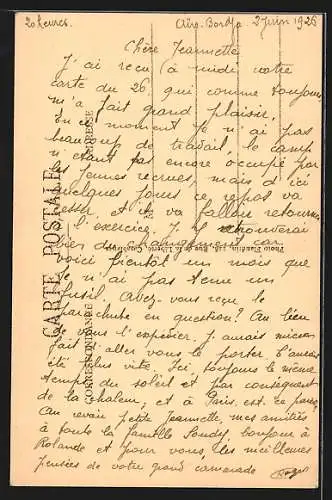 20 heures.
Aïn-Bordja. 2 Juin 1926
Chère Jeannette
J'ai reçu à midi votre
carte du 26, qui comme toujours
m'a fait grand plaisir.
En ce moment je n'ai pas
beaucoup de travail, le camp
n'étant pas encore occupé par
les jeunes recrues, mais d'ici
quelques jours ce repos va
cesser, et il va falloir retourner
à l'exercice. J'y trouverai
bien du changement car
voici bientôt un mois que
je n'ai pas tenu un
fusil. Avez-vous reçu le
parachute en question? Au lieu
de vous l'expédier, j'aurais mieux
fait d'aller vous le porter. Ç'aurait
été plus vite. Ici, toujours le même
temps du soleil et par conséquent
de la chaleur, et à Paris, est-ce pareil?
Au revoir petite Jeannette, mes amitiés
à toute la famille, bonjour à
Rolande et pour vous, les meilleures
pensées de votre grand camarade
Roger
CARTE POSTALE
CORRESPONDANCE
ADRESSE